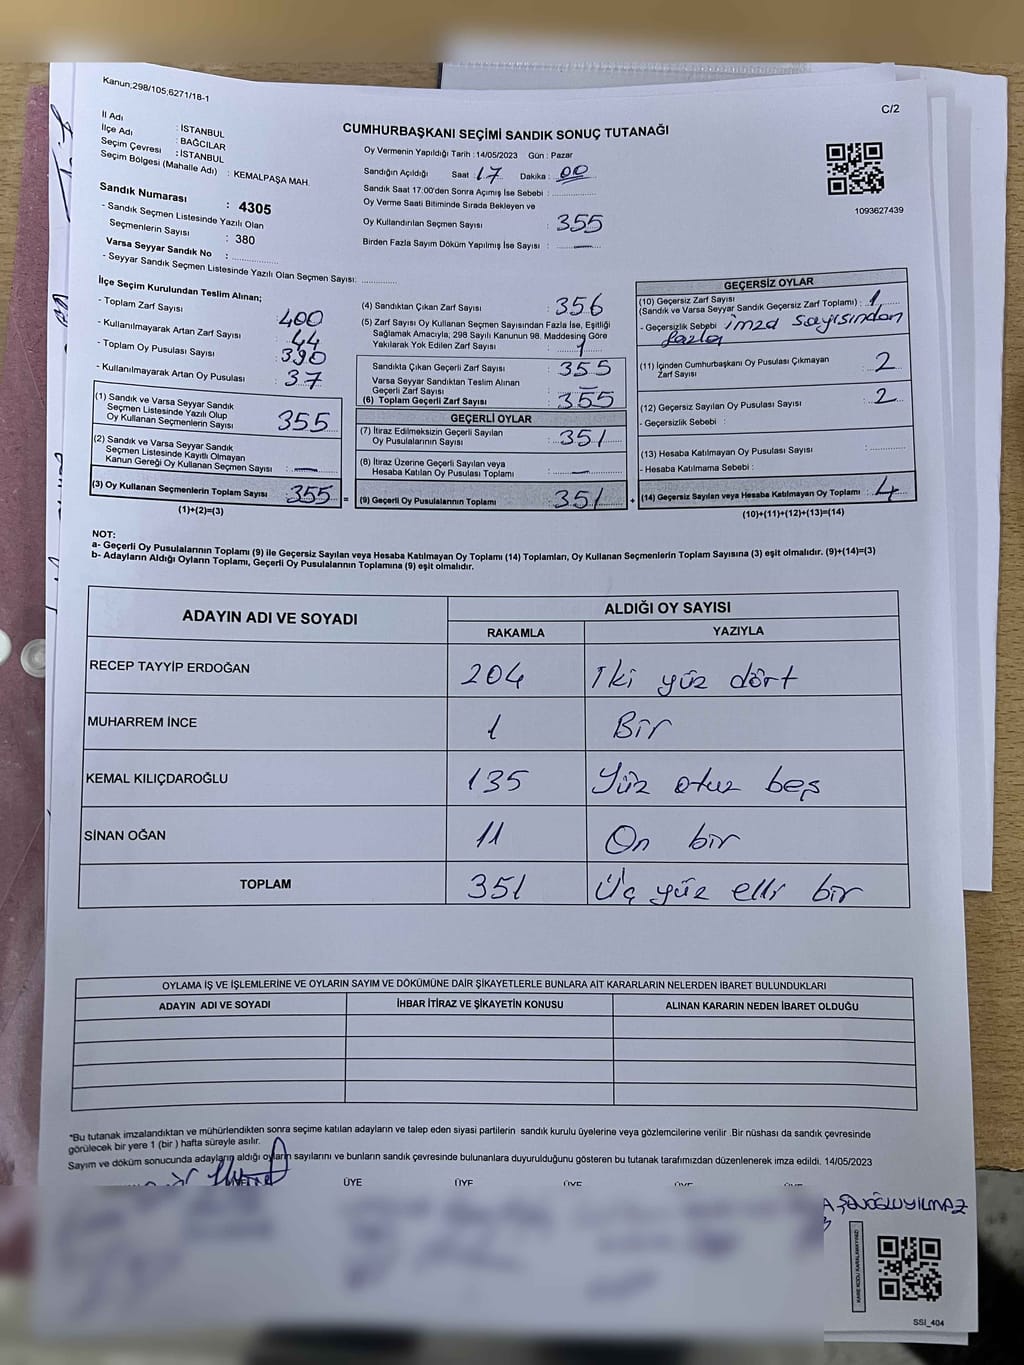 Kanun,298/105,6271/18-1
C/2
İl Adı : İSTANBUL
İlçe Adı : BAĞCILAR
Seçim Çevresi : İSTANBUL
Seçim Bölgesi (Mahalle Adı) : KEMALPAŞA MAH.
Sandık Numarası : 4305
- Sandık Seçmen Listesinde Yazılı Olan
Seçmenlerin Sayısı : 380
Varsa Seyyar Sandık No :
- Seyyar Sandık Seçmen Listesinde Yazılı Olan Seçmen Sayısı:
CUMHURBAŞKANI SEÇİMİ SANDIK SONUÇ TUTANAĞI
Oy Vermenin Yapıldığı Tarih : 14/05/2023 Gün : Pazar
Sandığın Açıldığı Saat : 17 Dakika : 00
Sandık Saat 17:00'den Sonra Açımış İse Sebebi :
Oy Verme Saati Bitiminde Sırada Bekleyen ve
Oy Kullandırılan Seçmen Sayısı : 355
Birden Fazla Sayım Döküm Yapılmış İse Sayısı : —
1093627439
İlçe Seçim Kurulundan Teslim Alınan;
- Toplam Zarf Sayısı : 400
- Kullanılmayarak Artan Zarf Sayısı : 44
- Toplam Oy Pusulası Sayısı : 390
- Kullanılmayarak Artan Oy Pusulası : 37
(1) Sandık ve Varsa Seyyar Sandık
Seçmen Listesinde Yazılı Olup
Oy Kullanan Seçmenlerin Sayısı : 355
(2) Sandık ve Varsa Seyyar Sandık
Seçmen Listesinde Kayıtlı Olmayan
Kanun Gereği Oy Kullanan Seçmen Sayısı : —
(3) Oy Kullanan Seçmenlerin Toplam Sayısı : 355 =
(1)+(2)=(3)
(4) Sandıktan Çıkan Zarf Sayısı : 356
(5) Zarf Sayısı Oy Kullanan Seçmen Sayısından Fazla İse, Eşitliği
Sağlamak Amacıyla, 298 Sayılı Kanunun 98. Maddesine Göre
Yakılarak Yok Edilen Zarf Sayısı : 1
Sandıkta Çıkan Geçerli Zarf Sayısı : 355
Varsa Seyyar Sandıktan Teslim Alınan
Geçerli Zarf Sayısı : —
(6) Toplam Geçerli Zarf Sayısı : 355
GEÇERLİ OYLAR
(7) İtiraz Edilmeksizin Geçerli Sayılan
Oy Pusulalarının Sayısı : 351
(8) İtiraz Üzerine Geçerli Sayılan veya
Hesaba Katılan Oy Pusulası Toplamı : —
(9) Geçerli Oy Pusulalarının Toplamı : 351 +
GEÇERSİZ OYLAR
(10) Geçersiz Zarf Sayısı
(Sandık ve Varsa Seyyar Sandık Geçersiz Zarf Toplamı) : 1
- Geçersizlik Sebebi : imza sayısından
fazla
(11) İçinden Cumhurbaşkanı Oy Pusulası Çıkmayan
Zarf Sayısı : 2
(12) Geçersiz Sayılan Oy Pusulası Sayısı : 2
- Geçersizlik Sebebi :
(13) Hesaba Katılmayan Oy Pusulası Sayısı :
- Hesaba Katılmama Sebebi :
(14) Geçersiz Sayılan veya Hesaba Katılmayan Oy Toplamı : 4
(10)+(11)+(12)+(13)=(14)
NOT:
a- Geçerli Oy Pusulalarının Toplamı (9) ile Geçersiz Sayılan veya Hesaba Katılmayan Oy Toplamı (14) Toplamları, Oy Kullanan Seçmenlerin Toplam Sayısına (3) eşit olmalıdır. (9)+(14)=(3)
b- Adayların Aldığı Oyların Toplamı, Geçerli Oy Pusulalarının Toplamına (9) eşit olmalıdır.
ADAYIN ADI VE SOYADI ALDIĞI OY SAYISI
RAKAMLA YAZIYLA
RECEP TAYYİP ERDOĞAN 204 İki yüz dört
MUHARREM İNCE 1 Bir
KEMAL KILIÇDAROĞLU 135 Yüz otuz beş
SİNAN OĞAN 11 On bir
TOPLAM 351 Üç yüz elli bir
OYLAMA İŞ VE İŞLEMLERİNE VE OYLARIN SAYIM VE DÖKÜMÜNE DAİR ŞİKAYETLERLE BUNLARA AİT KARARLARIN NELERDEN İBARET BULUNDUKLARI
ADAYIN ADI VE SOYADI İHBAR İTİRAZ VE ŞİKAYETİN KONUSU ALINAN KARARIN NEDEN İBARET OLDUĞU
*Bu tutanak imzalandıktan ve mühürlendikten sonra seçime katılan adayların ve talep eden siyasi partilerin sandık kurulu üyelerine veya gözlemcilerine verilir .Bir nüshası da sandık çevresinde
görülecek bir yere 1 (bir ) hafta süreyle asılır.
Sayım ve döküm sonucunda adayların aldığı oyların sayılarını ve bunların sandık çevresinde bulunanlara duyurulduğunu gösteren bu tutanak tarafımızdan düzenlenerek imza edildi. 14/05/2023
ÜYE ÜYE ÜYE ÜYE ÜYE
ŞENOĞLUYILMAZ
SSİ_404